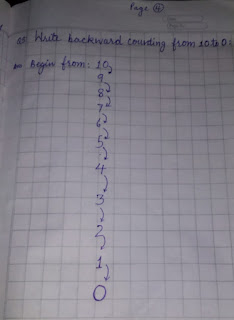 Page 4
Q5 Write backward counting from 10 to 0:
Begin from: 10,
9
8
7
6
5
4
3
2
1
0